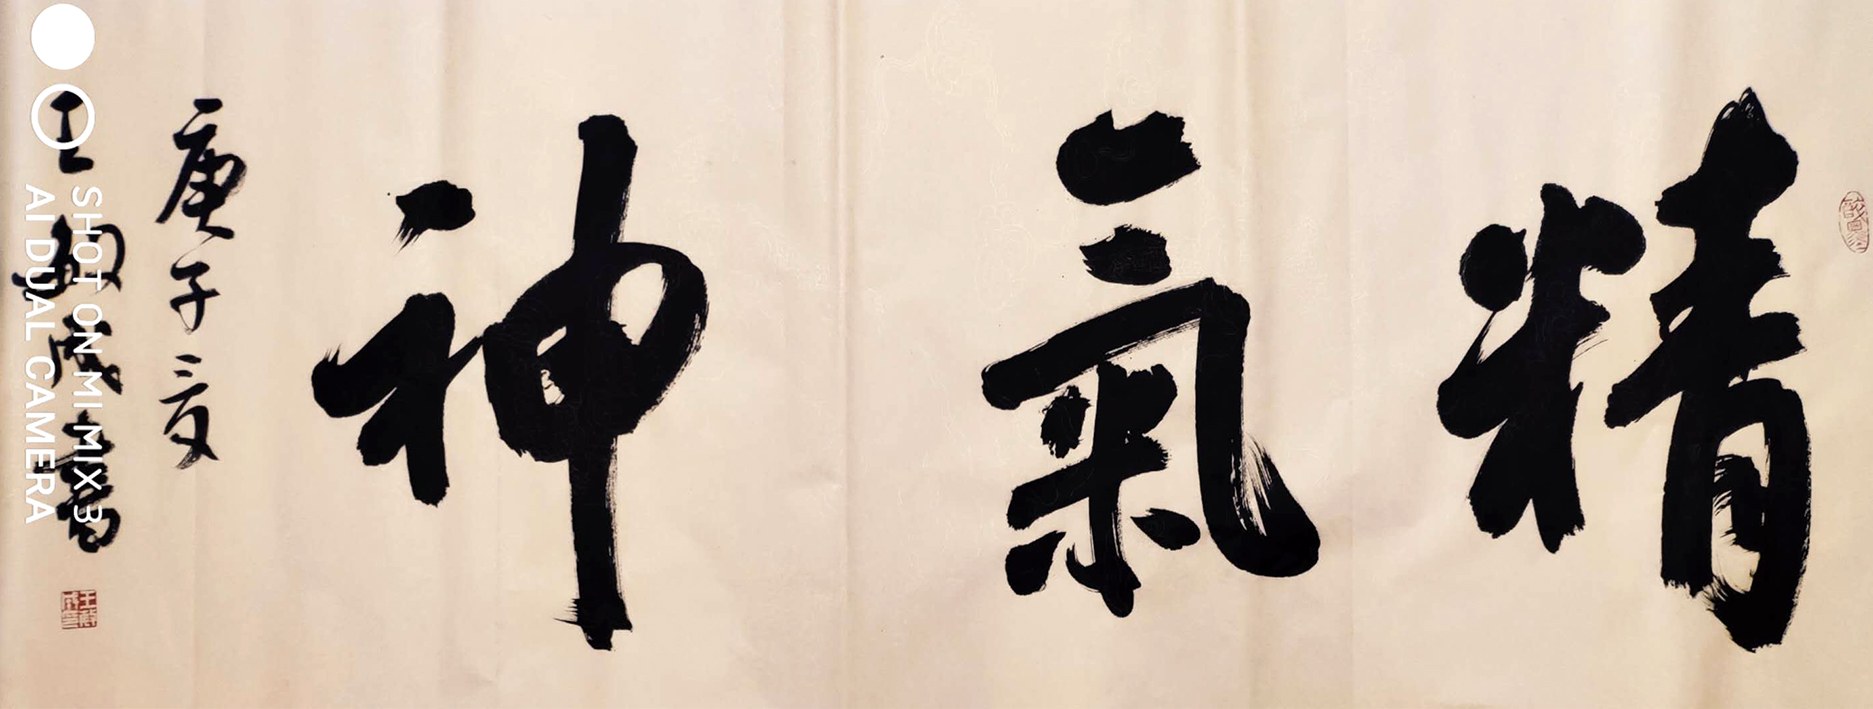 精氣神
庚子夏
王敏成書
SHOT ON MI MIX3
AI DUAL CAMERA